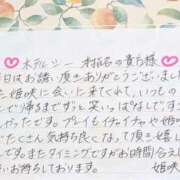 ホテルシー 本指名の貴方様
日はお誘い頂きありがとうございまし
姫咲に会いに来てくれて、いつもの
で帰るまでずっと笑いっぱなしですご
ったです。プレイもイチャイチャや姫
たくさん気持ち良くなって頂き嬉し
です。またタイミングですがお時間合えば
お待ちしております。 姫咲